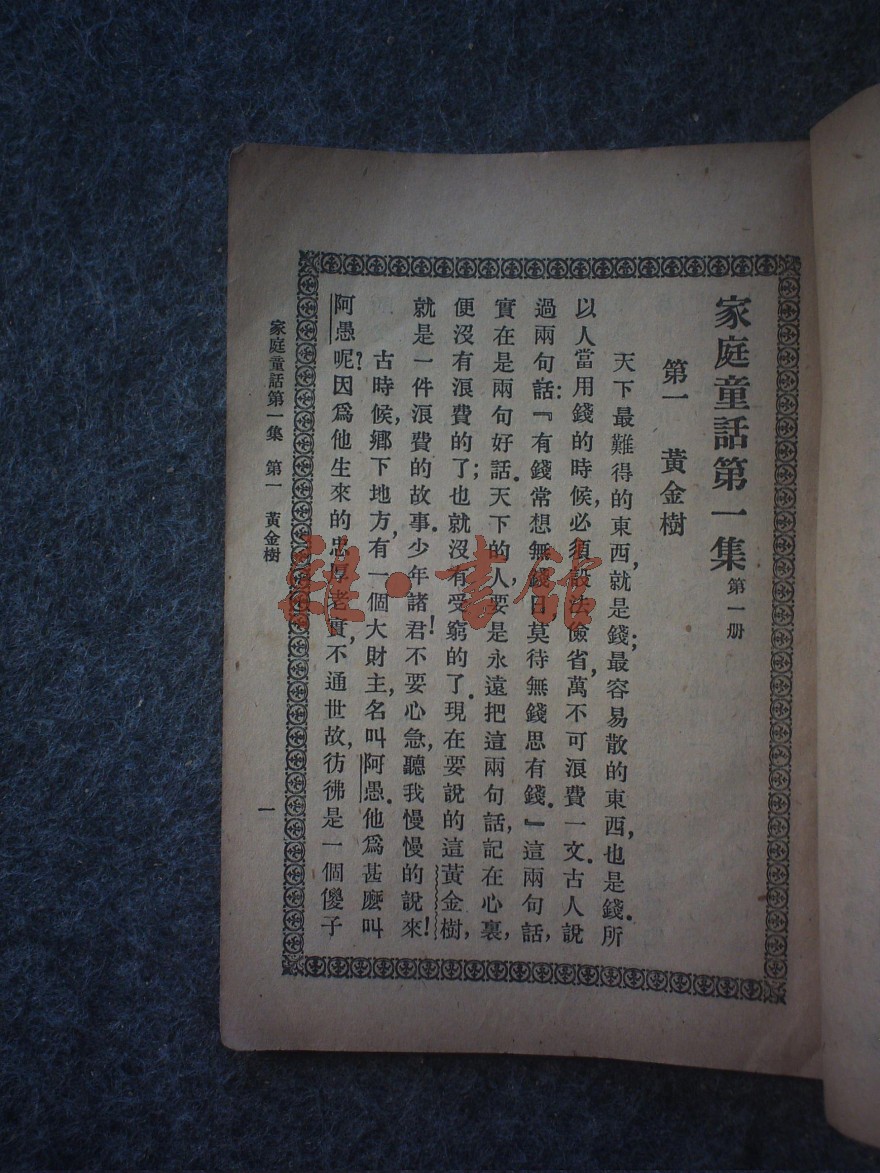 家庭童話第一集 第一册
第一 黃金樹
天下最難得的東西,就是錢;最容易散的東西,也是錢.所
以人當用錢的時候,必須設法儉省,萬不可浪費一文.古人說
過兩句話:『有錢常想無錢日,莫待無錢思有錢.』這兩句話,
實在是兩句好話.天下的人,要是永遠把這兩句話,記在心裏,
便沒有浪費的了;也就沒有受窮的了.現在要說的這黃金樹,
就是一件浪費的故事.少年諸君!不要心急,聽我慢慢的說來!
古時候,鄉下地方,有一個大財主,名叫阿愚.他爲甚麽叫
阿愚呢?因爲他生來的忠厚老實,不通世故,彷彿是一個傻子
家庭童話第一集 第一 黃金樹
一
雜·書館